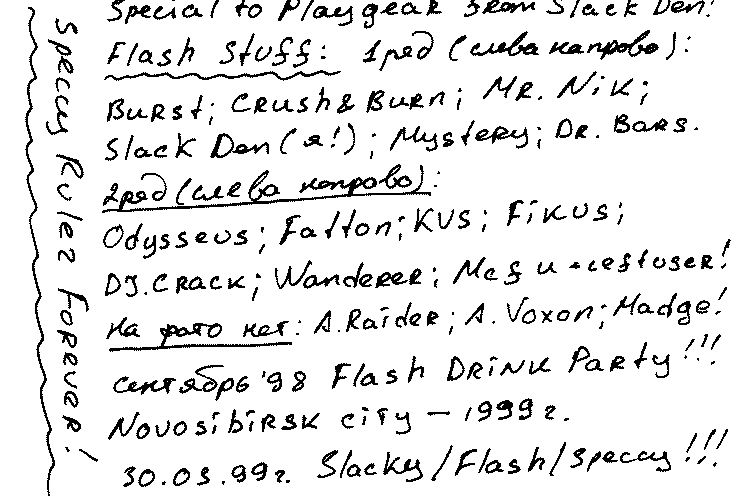 Special to Playgear from Slack Den!
Flash Stuff: 1 ряд (слева направо):
Burst; Crush & Burn; Mr. Nik;
Slack Den (я!); Mystery; Dr. Bars.
2 ряд (слева направо):
Odysseus; Fatton; KVS; Fikus;
DJ.Crack; Wanderer; Mef и
На фото нет: A.Raider; A.Voxon; Madge!
сентябрь '98 Flash Drink Party!!!
Novosibirsk city – 1999 г.
30.03.99г. Slacky/Flash/Speccy!!!
Speccy Rulez Forever!